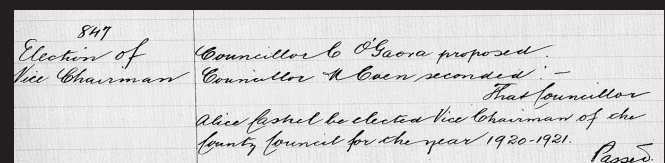 847
Election of
Vice Chairman
Councillor C O'Gaora proposed.
Councillor M Coen seconded :-
That Councillor
Alice Cashel be elected Vice Chairman of the
County Council for the year 1920-1921.
Passed